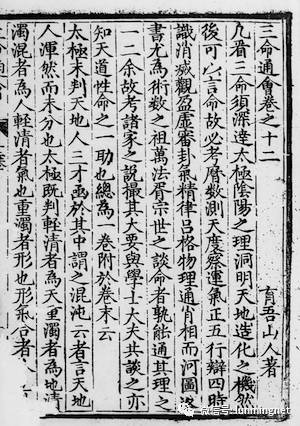 三命通會卷之十二
育吾山人著
凡看三命須深達太極陰陽之理洞明天地造化之機然
後可以言命故必考曆數測天度察運氣正五行辯四時
識消咸觀盈虛審卦氣精律呂格物理通肖相而河圖洛
書尤為術數之祖萬法胥宗世之談命者孰能通其理之
一二余故考諸家之說撮其大要與學士大夫共談之亦
知天道性命之一助也總為一卷附於卷末云
太極未判天地人三才函於其中謂之混沌云者言天地
人渾然而未分也太極既判輕清者為天重濁者為地清
濁混者為人輕清者氣也重濁者形也形氣合者
微信号: lunmingnet